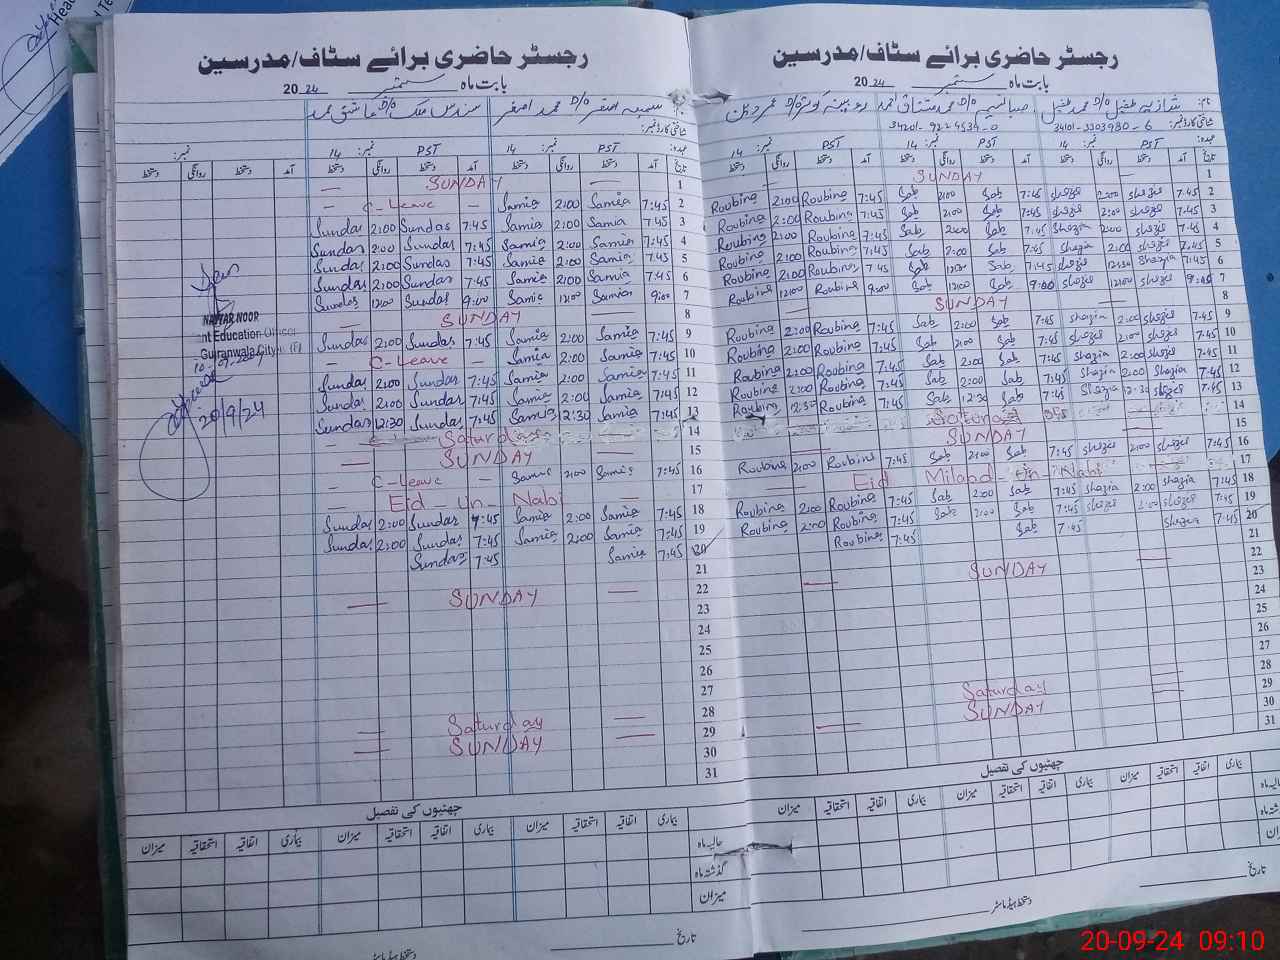 رجسٹر حاضری برائے سٹاف/مدرسین
بابت ماہ ستمبر 2024
نام:
شناختی کارڈ نمبر:
عہدہ: PST نمبر: 14 PST نمبر: 14 نمبر:
تاریخ آمد دستخط روانگی دستخط آمد دستخط روانگی دستخط آمد دستخط روانگی دستخط
— SUNDAY — 1
— C-Leave — Samia 2:00 Samia 7:45 2
Sundas 2:00 Sundas 7:45 Samia 2:00 Samia 7:45 3
Sundas 2:00 Sundas 7:45 Samia 2:00 Samia 7:45 4
Sundas 2:00 Sundas 7:45 Samia 2:00 Samia 7:45 5
Sundas 2:00 Sundas 7:45 Samia 2:00 Samia 7:45 6
Sundas 12:00 Sundas 9:00 Samia 12:00 Samia 9:00 7
— SUNDAY — 8
Sundas 2:00 Sundas 7:45 Samia 2:00 Samia 7:45 9
C-Leave — Samia 2:00 Samia 7:45 10
Sundas 2:00 Sundas 7:45 Samia 2:00 Samia 7:45 11
Sundas 2:00 Sundas 7:45 Samia 2:00 Samia 7:45 12
Sundas 12:30 Sundas 7:45 Samia 12:30 Samia 7:45 13
Saturday 14
— SUNDAY — 15
— C-Leave — Samia 2:00 Samia 7:45 16
Eid - Un - Nabi — 17
Sundas 2:00 Sundas 7:45 Samia 2:00 Samia 7:45 18
Sundas 2:00 Sundas 7:45 Samia 2:00 Samia 7:45 19
Sundas 7:45 Samia 7:45 20
21
— SUNDAY — 22
23
24
25
26
27
— Saturday — 28
— SUNDAY — 29
30
31
NAYYAR NOOR
nt Education Officer
Gujranwala City
20/9/24
چھٹیوں کی تفصیل
بیماری اتفاقیہ استحقاقیہ میزان بیماری اتفاقیہ استحقاقیہ میزان بیماری اتفاقیہ استحقاقیہ میزان
حالیہ ماہ
گذشتہ ماہ
میزان
تاریخ
دستخط ہیڈ ماسٹر
رجسٹر حاضری برائے سٹاف/مدرسین
بابت ماہ ستمبر 2024
نام: شازیہ طفیل D/o محمد طفیل
شناختی کارڈ نمبر: 34101-3303980-6 34201-9224534-0
عہدہ: PST نمبر: 14 PST نمبر: 14 PST نمبر: 14
تاریخ آمد دستخط روانگی دستخط آمد دستخط روانگی دستخط آمد دستخط روانگی دستخط
— SUNDAY — 1
Roubina 2:00 Roubina 7:45 Sab 2:00 Sab 7:45 Shazia 2:00 Shazia 7:45 2
Roubina 2:00 Roubina 7:45 Sab 2:00 Sab 7:45 Shazia 2:00 Shazia 7:45 3
Roubina 2:00 Roubina 7:45 Sab 2:00 Sab 7:45 Shazia 2:00 Shazia 7:45 4
Roubina 2:00 Roubina 7:45 Sab 2:00 Sab 7:45 Shazia 2:00 Shazia 7:45 5
Roubina 2:00 Roubina 7:45 Sab 12:30 Sab 7:45 Shazia 12:30 Shazia 7:45 6
Roubina 12:00 Roubina 9:00 Sab 12:00 Sab 9:00 Shazia 12:00 Shazia 9:00 7
SUNDAY — 8
Roubina 2:00 Roubina 7:45 Sab 2:00 Sab 7:45 Shazia 2:00 Shazia 7:45 9
Roubina 2:00 Roubina 7:45 Sab 2:00 Sab 7:45 Shazia 2:00 Shazia 7:45 10
Roubina 2:00 Roubina 7:45 Sab 2:00 Sab 7:45 Shazia 2:00 Shazia 7:45 11
Roubina 2:00 Roubina 7:45 Sab 2:00 Sab 7:45 Shazia 2:00 Shazia 7:45 12
Roubina 12:30 Roubina 7:45 Sab 12:30 Sab 7:45 Shazia 12:30 Shazia 7:45 13
14
— SUNDAY — 15
Roubina 2:00 Roubina 7:45 Sab 2:00 Sab 7:45 Shazia 2:00 Shazia 7:45 16
Eid Milad - Un - Nabi 17
Roubina 2:00 Roubina 7:45 Sab 2:00 Sab 7:45 Shazia 2:00 Shazia 7:45 18
Roubina 2:00 Roubina 7:45 Sab 2:00 Sab 7:45 Shazia 2:00 Shazia 7:45 19
Roubina 7:45 Sab 7:45 Shazia 7:45 20
21
— SUNDAY — 22
23
24
25
26
27
Saturday — 28
— SUNDAY — 29
30
31
چھٹیوں کی تفصیل
بیماری اتفاقیہ استحقاقیہ میزان بیماری اتفاقیہ استحقاقیہ میزان بیماری اتفاقیہ استحقاقیہ میزان
تاریخ
دستخط ہیڈ ماسٹر
20-09-24 09:10